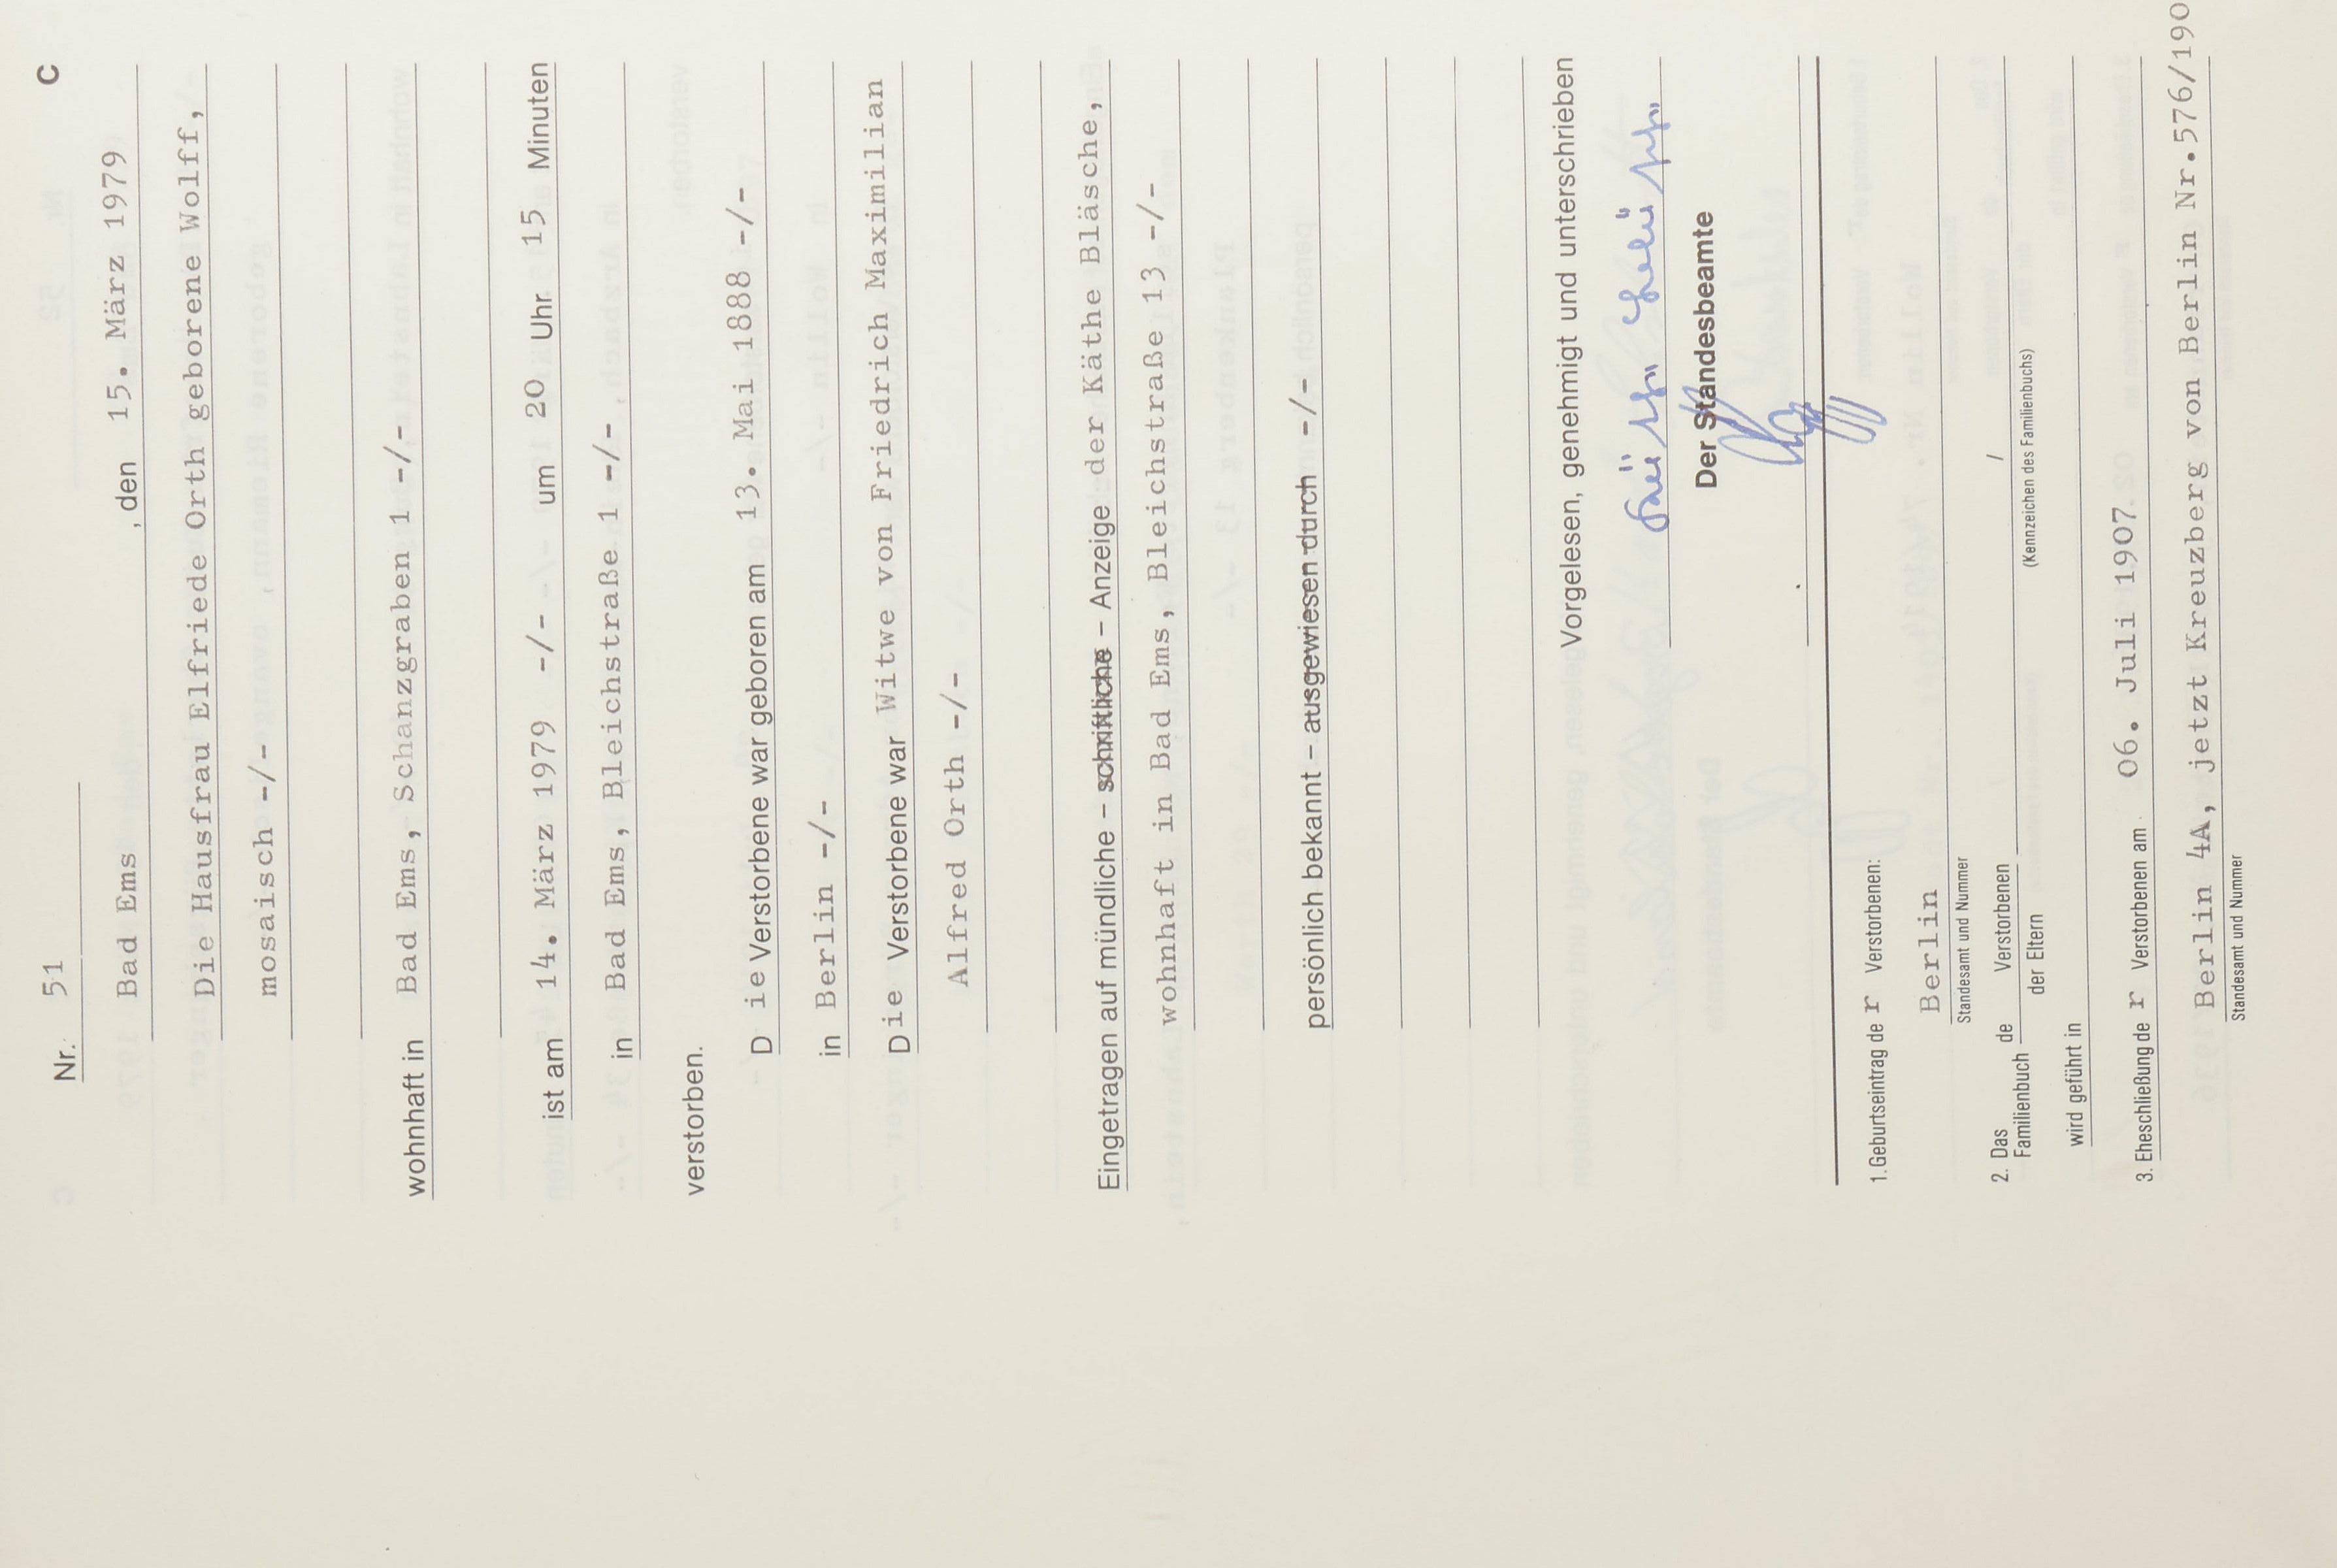 C
Nr. 51
Bad Ems, den 15. März 1979
Die Hausfrau Elfriede Orth geborene Wolff,
mosaisch -/-
wohnhaft in Bad Ems, Schanzgraben 1 -/-
ist am 14. März 1979 -/- um 20 Uhr 15 Minuten
in Bad Ems, Bleichstraße 1 -/-
verstorben.
Die Verstorbene war geboren am 13. Mai 1888 -/-
in Berlin -/-
Die Verstorbene war Witwe von Friedrich Maximilian
Alfred Orth -/-
Eingetragen auf mündliche – schriftliche – Anzeige der Käthe Bläsche,
wohnhaft in Bad Ems, Bleichstraße 13 -/-
persönlich bekannt – ausgewiesen durch -/-
Vorgelesen, genehmigt und unterschrieben
Der Standesbeamte
1. Geburtseintrag der Verstorbenen:
Berlin
Standesamt und Nummer
2. Das Familienbuch de Verstorbenen der Eltern /
(Kennzeichen des Familienbuchs)
wird geführt in
3. Eheschließung der Verstorbenen am 06. Juli 1907
Berlin 4A, jetzt Kreuzberg von Berlin Nr. 576/190
Standesamt und Nummer